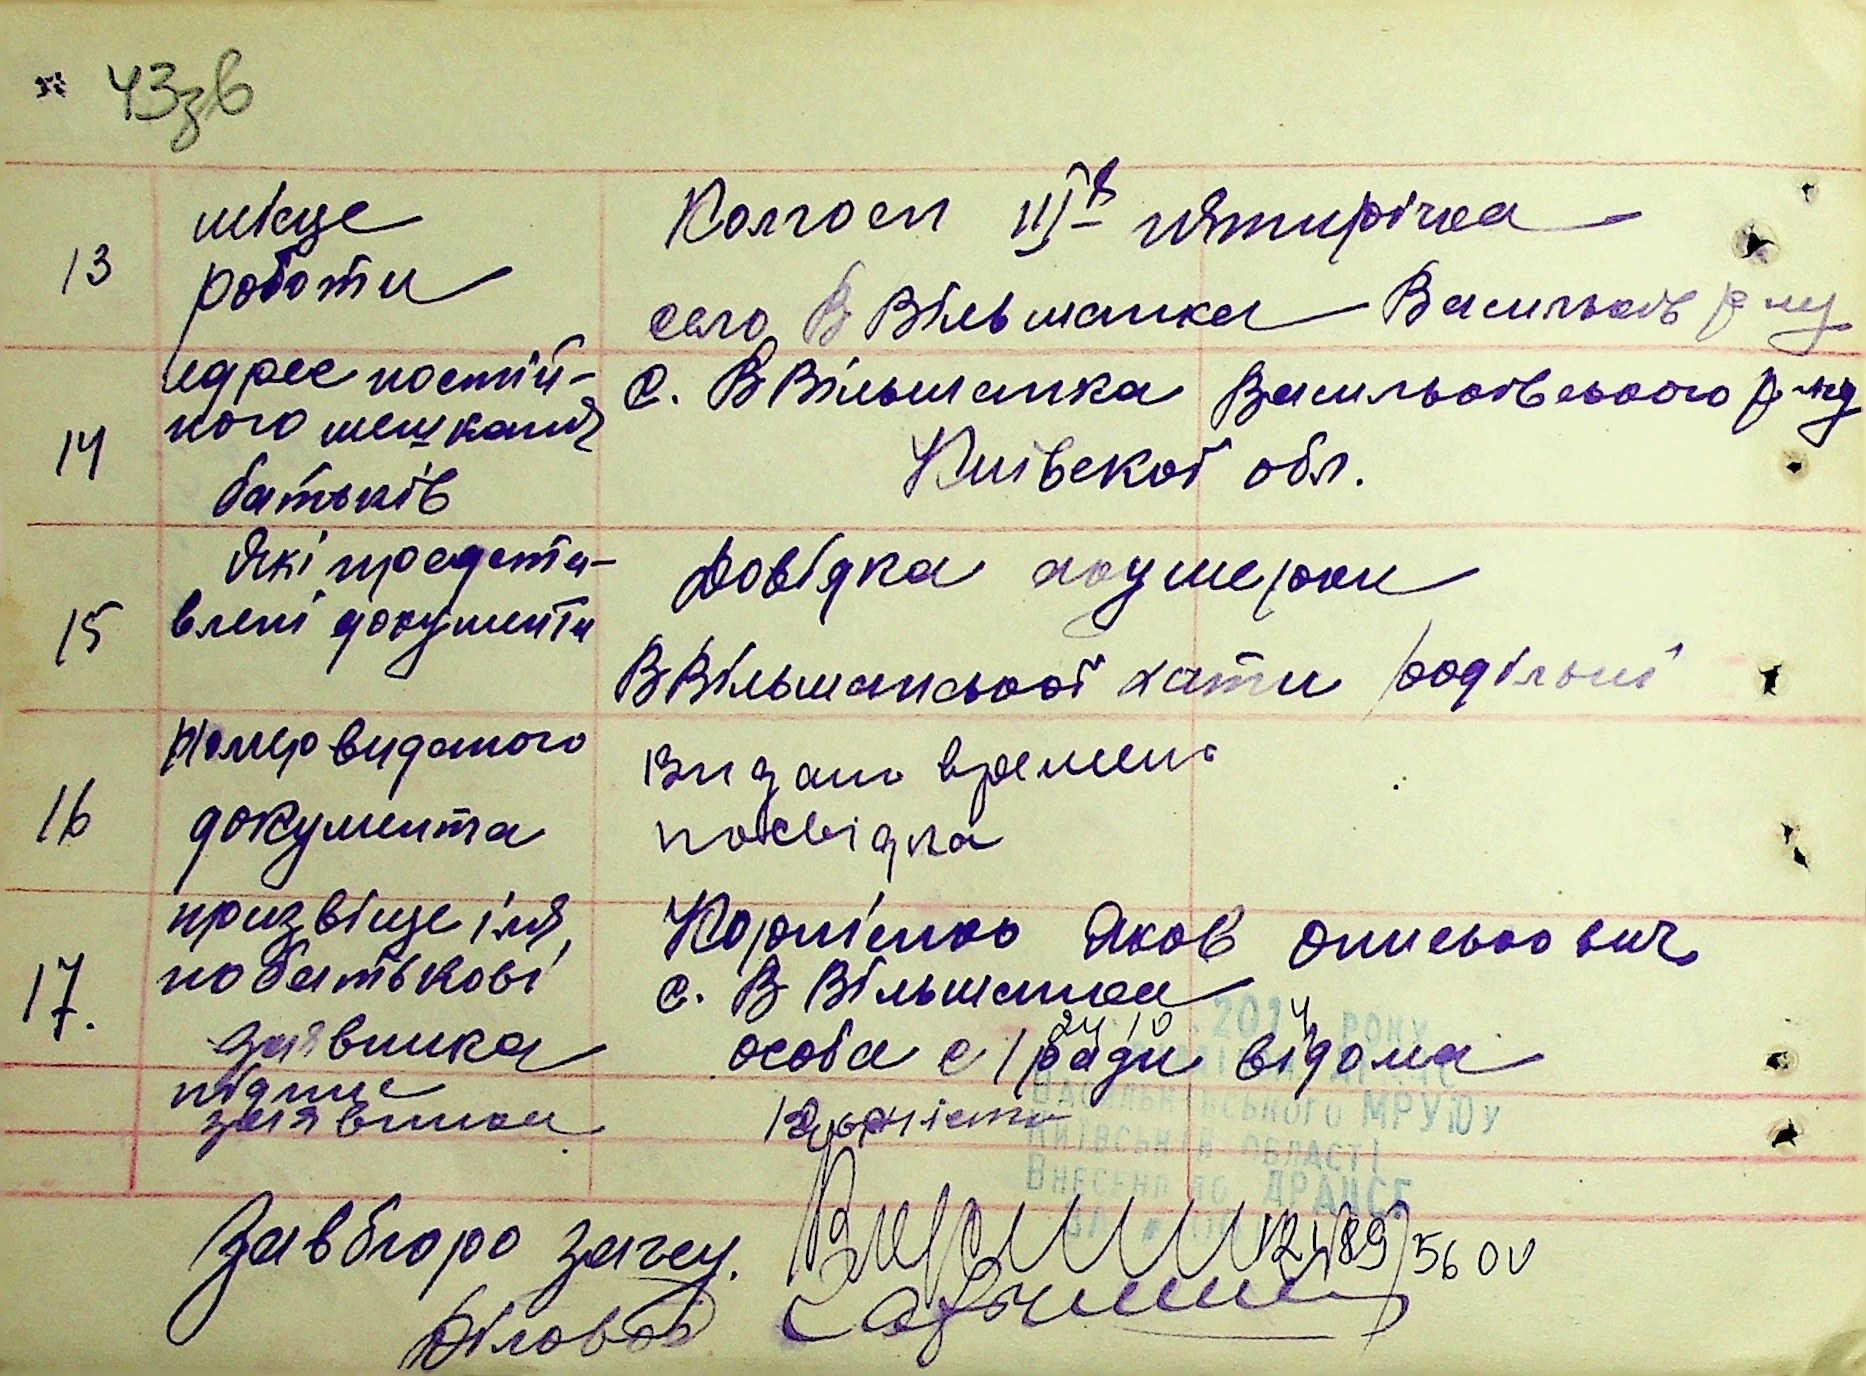 43зв
13 місце роботи
Колгосп III я пятирічка
село В Вільшанка Васильків р-ну
14 адрес постійного мешканя батьків
с. В Вільшанка Васильківського р-ну
Київскої обл.
15 Які предста-
влені документи
Довідка акушерки
В Вільшанської хати родільні
16 Номер виданого
документа
Видано времено
посвідка
17. призвіще імя,
по батькові
заявника
Корнієнко Яков Ониськович
с. В Вільшанка
особа с/ради відома
24 10 2014 РОКУ
підпис
заявника
Корнієнко
ВАСИЛЬКІВСЬКОГО МРУЮ У
КИЇВСЬКІЙ ОБЛАСТІ
ВНЕСЕНО ДО ДРАЦСГ
Завбюро загсу.
Діловод